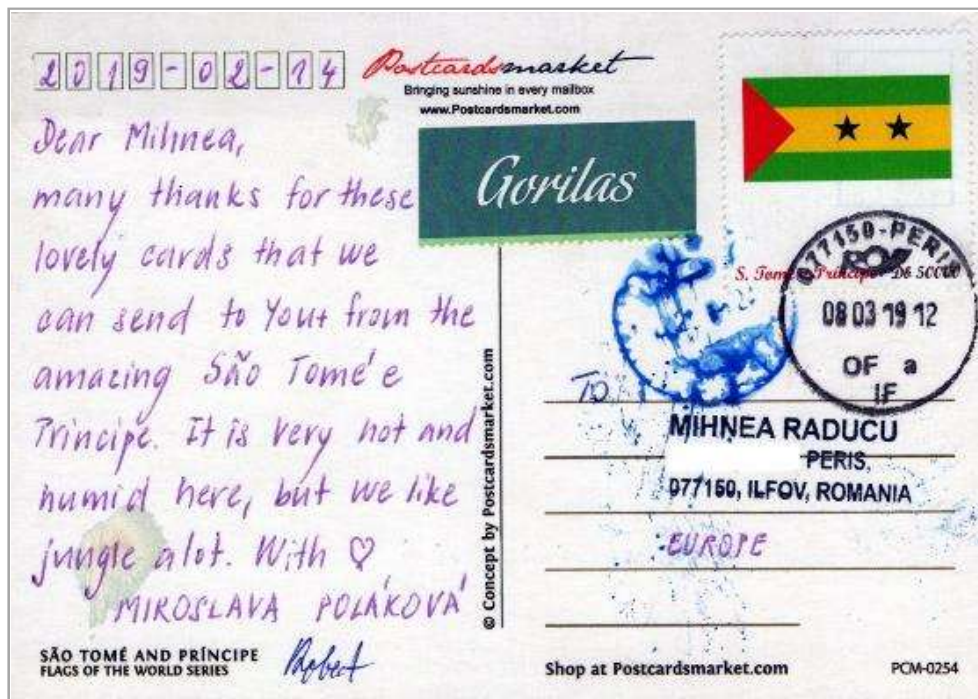 2019-02-14
Postcardsmarket
Bringing sunshine in every mailbox
www.Postcardsmarket.com
Dear Mihnea,
many thanks for these
lovely cards that we
can send to You+ from the
amazing São Tomé e
Principe. It is very hot and
humid here, but we like
jungle alot. With ♡
MIROSLAVA POLÁKOVÁ
Robert
SÃO TOMÉ AND PRÍNCIPE
FLAGS OF THE WORLD SERIES
© Concept by Postcardsmarket.com
Gorilas
S. Tomé e Príncipe Db 50000
077150-PERIS
08 03 19 12
OF a
IF
TO
MIHNEA RADUCU
PERIS,
077150, ILFOV, ROMANIA
EUROPE
Shop at Postcardsmarket.com
PCM-0254